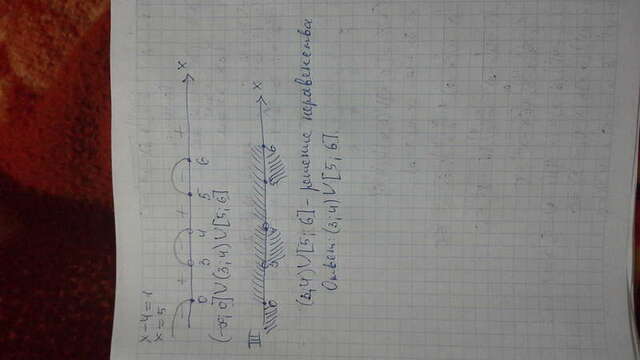 x-4=1
x=5
- + - + - +
0 3 4 5 6 x
(-∞; 0]∪(3;4)∪[5; 6]
III
0 3 4 5 6 x
(3;4)∪[5; 6] - решение неравенства
Ответ: (3;4)∪[5; 6].